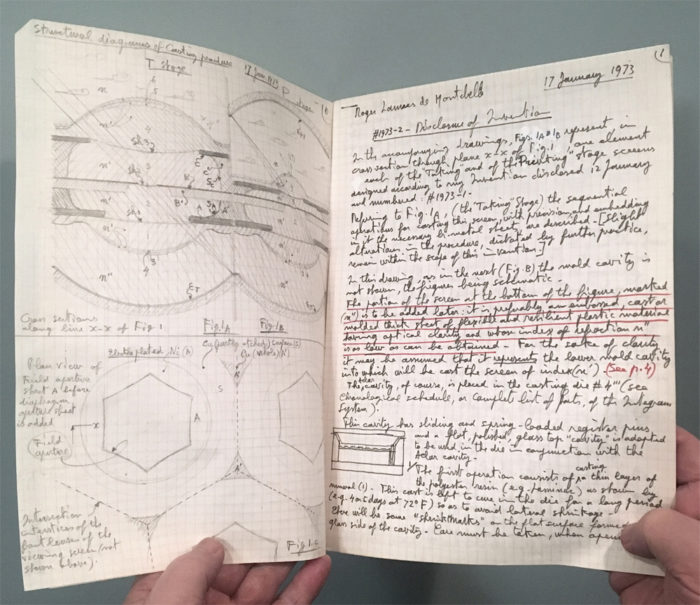 Structural diagrams of Casting procedure 17 Jan 1973
T stage
P stage
Cross sections
along line x-x of Fig 1.
Fig 1A
Fig 1B
Electroplated Ni (h)
Plan view of
Field aperture
sheet A before
diaphragm
aperture sheet
is added
Field
aperture
A
S
x
Intersection
interstices of the
front lenses of the
viewing screen (not
shown above).
Fig 1-C
(1
17 January 1973
Roger Lannes de Montebello
#1973-2 - Disclosure of Invention
In the accompanying drawings, Figs 1A & 1B represent in
cross section through plane x-x of Fig. 1 one element
each of the "Taking" and of the "Printing" stage screens
designed according to my Invention disclosed 12 January
and numbered: #1973-1.
Referring to Fig-1A, (the "Taking" Stage) the sequential
operations for casting this screen, with precision, and embedding
in it the necessary bi-metal sheet, are described - [slight
alterations in the procedure, dictated by further practice,
remain within the scope of this invention]
In this drawing, as in the next (Fig. B) the mold cavity is
not shown, the figure being schematic.
The portion of the screen at the bottom of the figure, marked
(n") is to be added later; it is preferably an enforced, cast or
molded thick sheet of flexible and resilient plastic material
having optical clarity and whose index of refraction n"
is as low as can be obtained - For the sake of clarity
it may be assumed that it represents the lower mold cavity
into which will be cast the screen of index (n') (See p. 4)
The latter cavity, of course, is placed in the casting die #4"' (see
Chronological schedule, or Complete list of parts, of the Integram
System).
This cavity has sliding and spring-loaded register pins
and a flat, polished, glass top "cavity" is adapted
to be used in the die in conjunction with the
latter cavity.
The first operation consists of casting a thin layer of
the polyester resin (e.g. Laminac) as shown by
numeral (1). This cast is left to cure in the die for a long period
(e.g. 4 or 5 days at 72°F) so as to avoid lateral shrinkage -
There will be some "shrink marks" on the flat surface formed
glass side of the cavity. Care must be taken, when